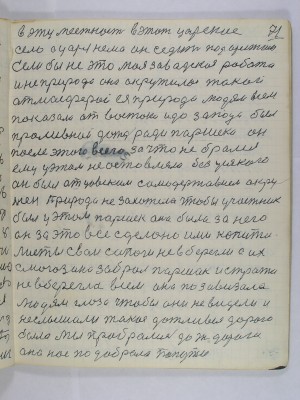 71
в эту местност в этот царские
село а царя нема он седит под арестом
Если бы не это моя завадская работа
и не природа она окружила такой
атмосферой ея природа людям всем
показала от востока и до запада был
проливной дождь ради паршека он
после этого всего за что не брался
ему в этом не оставляло без усякого
он был
мен Природа не захотела чтобы участник
был у этом паршек она была за него
он за это всё сделано ими копити
свои сапоги не вберегли с их
она забрал паршек и страта
не вберегла всем она позавизала
людям глаза чтобы они не видели и
неслышали такое дождливая дорога
была мы пробрались до ж. дороги
она нас подобрала попутно